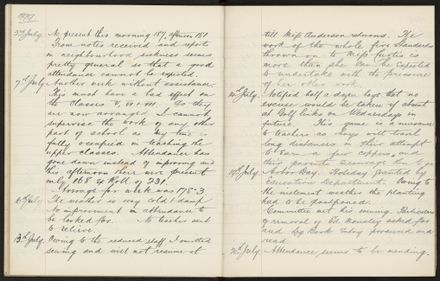 1897
5th July. At present this morning 187, afternoon 181
From notes received and report
in neighbourhood sickness seems
pretty general so that a good
attendance cannot be expected.
7th July. Another week without assistance.
This must have a bad effect on
the classes V, VI & VII. As they
are now arranged I cannot
supervise the work of any other
part of school as my time is
fully occupied in teaching the
upper classes. Attendance has
gone down instead of improving and
this afternoon there were present
only 168 to Roll of 231.
Average for week was 178.3
The weather is very cold & damp
so improvement in attendance to
be looked for. No teacher sent
to relieve.
13th July. Owing to the reduced staff I omitted
sewing and will not resume it
till Miss Anderson returns. The
work of the whole five standards
thrown on to Miss is
more than she can be expected
to undertake with the pressure
of her other work.
Notified half a dozen boys that no
excuse would be taken if absent
at Golf links on Wednesdays in
future. The game is a nuisance
to teachers as boys will travel
long distances in their attempt
to earn a few coppers and
their parents
Arbor Day. Holiday granted by
Education Department. Owing to
the inclement weather the planting
had to be postponed.
Committee met this evening. Particulars
of removal of asked for
and Log Book today produced and
read
Attendance seems to be mending.